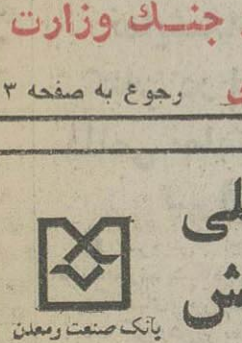 جنـك وزارت
رجوع به صفحه ۳
بانک صنعت و معدن